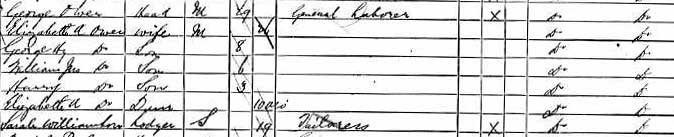 George Ower Head M 29 General Laborer X Do Do
Elizabeth A Ower Wife M Do Do
George Hy Do Son 8 Do Do
William Jno Do Son 6 Do Do
Harry Do Son 3 Do Do
Elizabeth A Do Daur 10 mos Do Do
Sarah Williamson Lodger S 19 Tailoress X Do Do